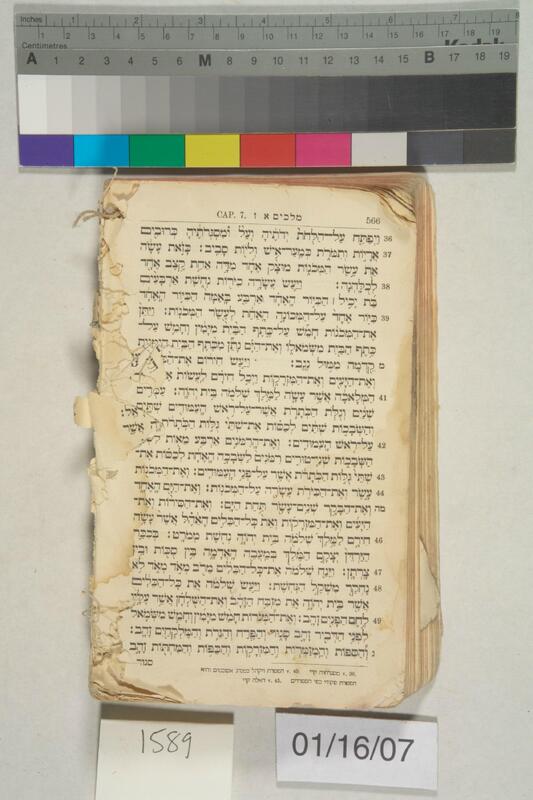 Inches 1 2 3 4 5 6 7 8
Centimetres 1 2 3 4 5 6 7 8 9 10 11 12 13 14 15 16 17 18 19
Kodak
A 1 2 3 4 5 6 M 8 9 10 11 12 13 14 15 B 17 18 19
CAP. 7. מלכים א ז 566
36 וַיְפַתַּח עַל־הַלֻּחֹת יְדֹתֶיהָ וְעַל וּמִסְגְּרֹתֶיהָ כְּרוּבִים
37 אֲרָיוֹת וְתִמֹרֹת כְּמַעַר־אִישׁ וְלֹיוֹת סָבִיב׃ כָּזֹאת עָשָׂה
אֵת עֶשֶׂר הַמְּכֹנוֹת מוּצָק אֶחָד מִדָּה אַחַת קֶצֶב אֶחָד
38 לְכֻלָּהְנָה׃ וַיַּעַשׂ עֲשָׂרָה כִיֹּרוֹת נְחֹשֶׁת אַרְבָּעִים
בַּת יָכִיל ׀ הַכִּיּוֹר הָאֶחָד אַרְבַּע בָּאַמָּה הַכִּיּוֹר הָאֶחָד
39 כִּיּוֹר אֶחָד עַל־הַמְּכוֹנָה הָאַחַת לְעֶשֶׂר הַמְּכֹנוֹת׃ וַיִּתֵּן
אֶת־הַמְּכֹנוֹת חָמֵשׁ עַל־כֶּתֶף הַבַּיִת מִיָּמִין וְחָמֵשׁ עַל־
כֶּתֶף הַבַּיִת מִשְּׂמֹאלוֹ וְאֶת־הַיָּם נָתַן מִכֶּתֶף הַבַּיִת הַיְמָנִית
מ קֵדְמָה מִמּוּל נֶגֶב׃ וַיַּעַשׂ חִירוֹם אֶת־
וְאֶת־הַיָּעִים וְאֶת־הַמִּזְרָקוֹת וַיְכַל חִירָם לַעֲשׂוֹת
41 הַמְּלָאכָה אֲשֶׁר עָשָׂה לַמֶּלֶךְ שְׁלֹמֹה בֵּית יְהוָה׃ עַמֻּדִים
שְׁנַיִם וְגֻלֹּת הַכֹּתָרֹת אֲשֶׁר־עַל־רֹאשׁ הָעַמּוּדִים
וְהַשְּׂבָכוֹת שְׁתַּיִם לְכַסּוֹת אֶת־שְׁתֵּי גֻּלּוֹת הַכֹּתָרֹת אֲשֶׁר
42 עַל־רֹאשׁ הָעַמּוּדִים׃ וְאֶת־הָרִמֹּנִים אַרְבַּע מֵאוֹת
הַשְּׂבָכוֹת שְׁנֵי־טוּרִים רִמֹּנִים לַשְּׂבָכָה הָאֶחָת לְכַסּוֹת אֶת־
43 שְׁתֵּי גֻּלּוֹת הַכֹּתָרֹת אֲשֶׁר עַל־פְּנֵי הָעַמּוּדִים׃ וְאֶת־הַמְּכֹנוֹת
44 עָשֶׂר וְאֶת־הַכִּיֹּרֹת עֲשָׂרָה עַל־הַמְּכֹנוֹת׃ וְאֶת־הַיָּם הָאֶחָד
מה וְאֶת־הַבָּקָר שְׁנֵים־עָשָׂר תַּחַת הַיָּם׃ וְאֶת־הַסִּירוֹת וְאֶת־
הַיָּעִים וְאֶת־הַמִּזְרָקוֹת וְאֵת כָּל־הַכֵּלִים הָאֹהֶל אֲשֶׁר עָשָׂה
46 חִירָם לַמֶּלֶךְ שְׁלֹמֹה בֵּית יְהוָה נְחֹשֶׁת מְמֹרָט׃ בְּכִכַּר
הַיַּרְדֵּן יְצָקָם הַמֶּלֶךְ בְּמַעֲבֵה הָאֲדָמָה בֵּין סֻכּוֹת וּבֵין
47 צָרְתָן׃ וַיַּנַּח שְׁלֹמֹה אֶת־כָּל־הַכֵּלִים מֵרֹב מְאֹד מְאֹד לֹא
48 נֶחְקַר מִשְׁקַל הַנְּחֹשֶׁת׃ וַיַּעַשׂ שְׁלֹמֹה אֵת כָּל־הַכֵּלִים
אֲשֶׁר בֵּית יְהוָה אֵת מִזְבַּח הַזָּהָב וְאֶת־הַשֻּׁלְחָן אֲשֶׁר עָלָיו
49 לֶחֶם הַפָּנִים זָהָב׃ וְאֶת־הַמְּנֹרוֹת חָמֵשׁ מִיָּמִין וְחָמֵשׁ מִשְּׂמֹאל
לִפְנֵי הַדְּבִיר זָהָב סָגוּר וְהַפֶּרַח וְהַנֵּרֹת וְהַמֶּלְקָחַיִם זָהָב׃
נ וְהַסִּפּוֹת וְהַמְזַמְּרוֹת וְהַמִּזְרָקוֹת וְהַכַּפּוֹת וְהַמַּחְתּוֹת זָהָב
סגור
v. 36. מסגרותיה קרי v. 40. הפטרת ויקהל כמנהג אשכנזים והוא
הפטרת פקודי כפי הספרדים v. 45. האלה קרי
1589
01/16/07